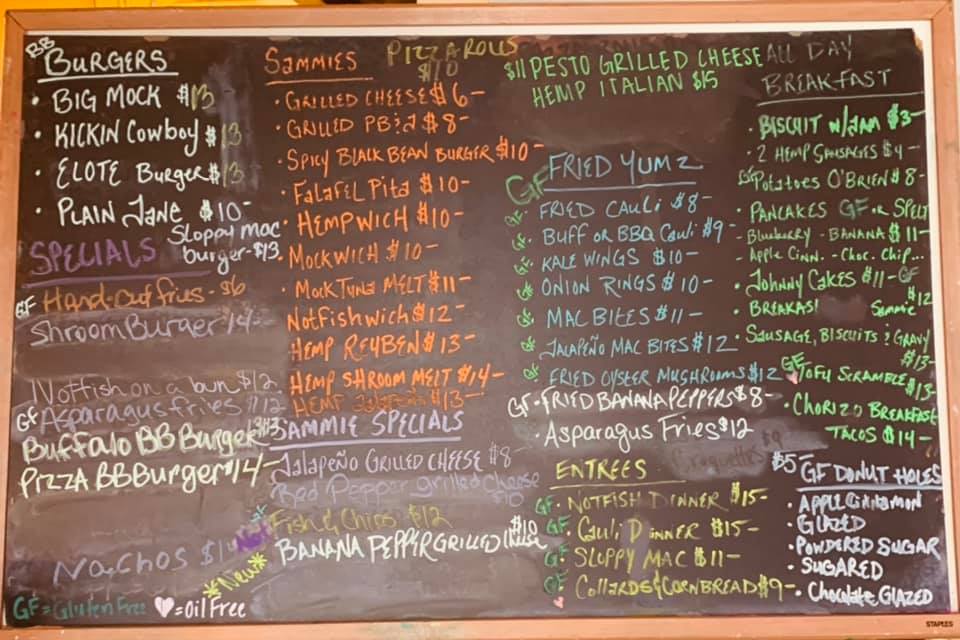 BB BURGERS
• BIG MOCK $13
• KICKIN COWBOY $13
• ELOTE BURGER $13
• PLAIN JANE $10-
Sloppy Mac
burger-$13
SPECIALS
GF Hand-cut fries-$6
Shroom Burger 14-
Notfish on a bun $12
GF Asparagus fries $12
Buffalo BB Burger
Pizza BB Burger $14-
Nachos
GF=Gluten Free ♥=Oil Free
SAMMIES
PIZZA ROLLS
$10
• GRILLED CHEESE $6-
• GRILLED PB&J $8-
• SPICY BLACK BEAN BURGER $10-
• Falafel Pita $10-
• HEMPWICH $10-
MOCKWICH $10-
• MOCK TUNA MELT $11-
NotFishwich $12-
HEMP REUBEN $13-
HEMP SHROOM MELT $14-
SAMMIE SPECIALS
Jalapeño GRILLED CHEESE $8-
Red Pepper grilled Cheese
$10
Fish & Chips $12
$10
BANANA PEPPER GRILLED Cheese
*New*
$11 PESTO GRILLED CHEESE
HEMP ITALIAN $15
GF FRIED YUMZ
GF• FRIED CAULI $8-
GF• BUFF OR BBQ CAULI $9-
GF• KALE WINGS $10-
GF• ONION RINGS $10-
GF• MAC BITES $11-
GF• JALAPEÑO MAC BITES $12
GF• FRIED OYSTER MUSHROOMS $12
GF• FRIED BANANA PEPPERS $8-
• ASPARAGUS FRIES $12
Croquettes $9-
ENTREES
GF• NOTFISH DINNER $15-
GF• CAULI DINNER $15-
GF• SLOPPY MAC $11-
GF• Collards & CORNBREAD $9-
ALL DAY
BREAKFAST
• BISCUIT W/JAM $3-
• 2 HEMP SAUSAGES $4-
GF Potatoes O'BRIEN $8-
• PANCAKES GF or SPELT
- Blueberry - BANANA $11-
- Apple Cinn. - Choc. Chip...
• Johnny Cakes $11- GF
$12
• BREAKAS! Sammie
• SAUSAGE, BISCUITS & GRAVY
$13-
GF
♥TOFU SCRAMBLE $13-
• CHORIZO BREAKFAST
TACOS $14-
$5- GF DONUT HOLES
• APPLE Cinnamon
• GLAZED
• POWDERED SUGAR
• SUGARED
• Chocolate GLAZED
STAPLES